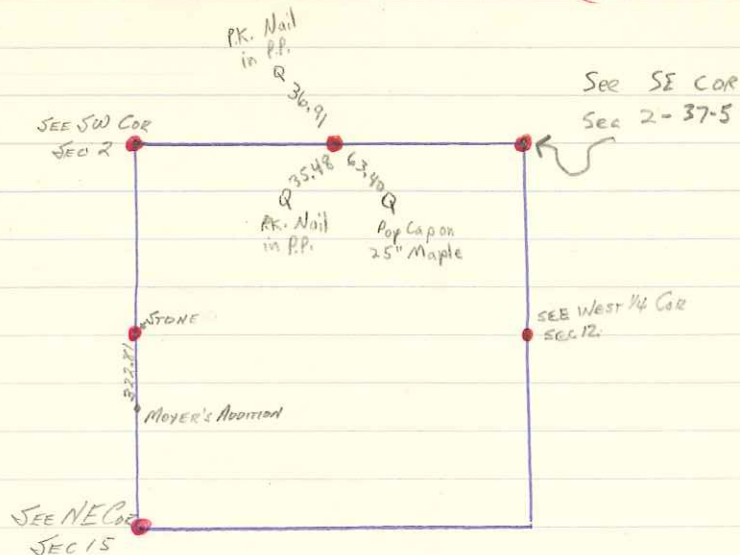 P.K. Nail
in P.P.
36.91
See SE COR
Sec 2-37-5
SEE SW COR
SEC 2
35.48
63.40
P.K. Nail
in P.P.
Pop Cap on
25" Maple
STONE
SEE WEST 1/4 COR
SEC 12.
322.81
MOYER'S ADDITION
SEE NE COR
SEC 15